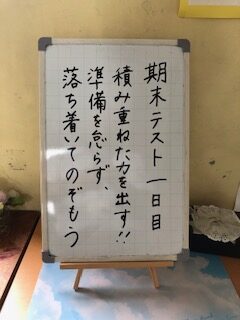 期末テスト一日目
積み重ねた力を出す!!
準備を怠らず、
落ち着いてのぞもう